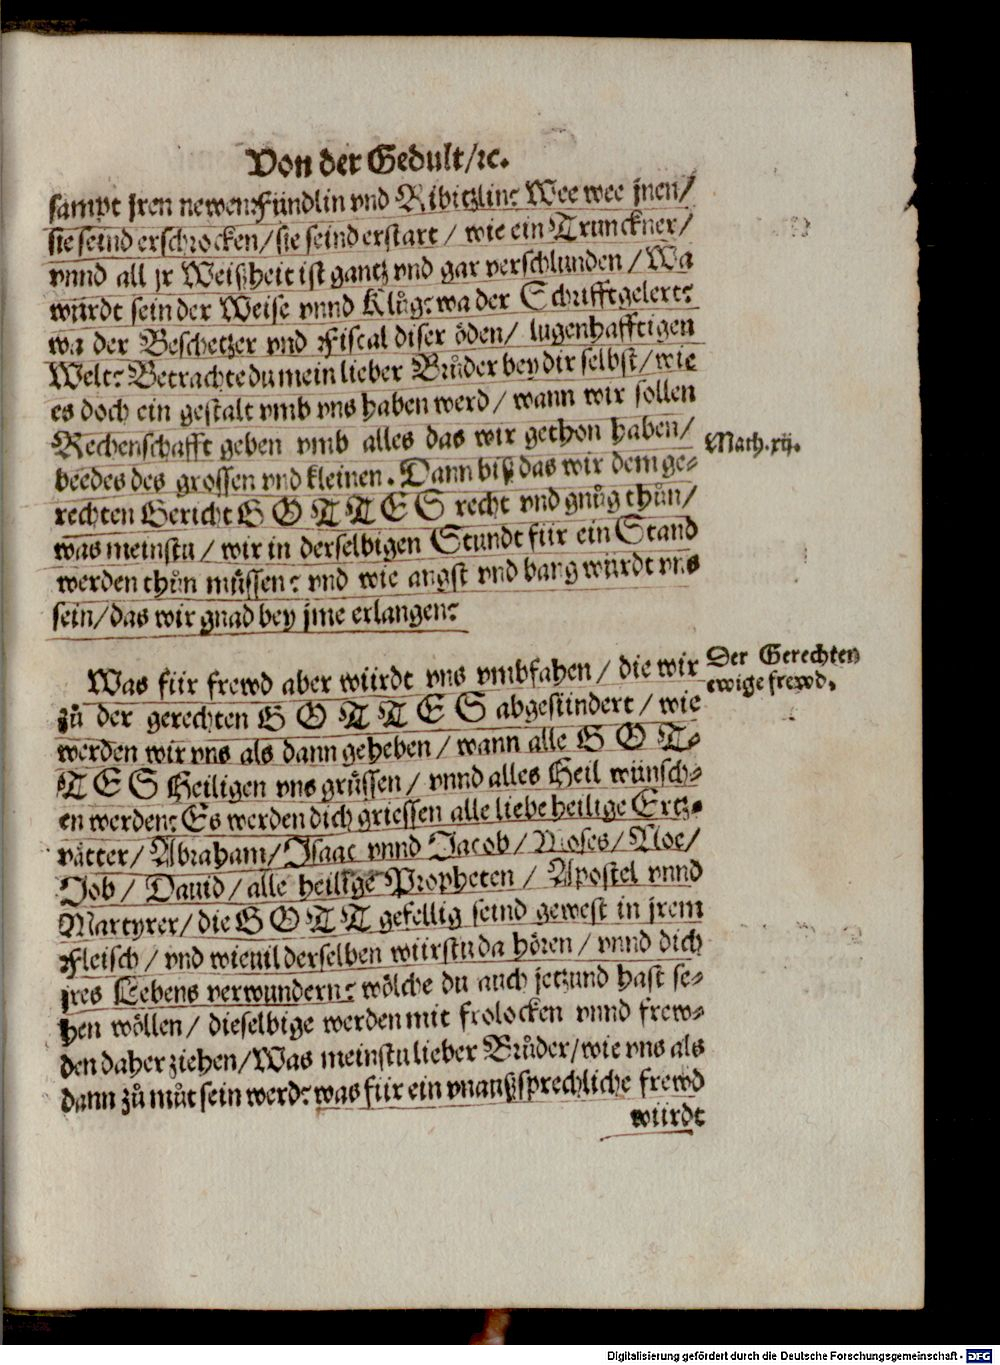 Von der Gedult/ꝛc.
sampt jren newen Fündlin vnd Ribitzlin: Wee wee jnen/
sie seind erschrocken/ sie seind erstart / wie ein Trunckner/
vnnd all jr Weißheit ist gantz vnd gar verschlunden / Wa
würdt sein der Weise vnnd Klůg: wa der Schrifftgelert:
wa der Beschetzer vnd Fiscal diser öden/ lugenhafftigen
Welt: Betrachte du mein lieber Brůder bey dir selbst/ wie
es doch ein gestalt vmb vns haben werd / wann wir sollen
Rechenschafft geben vmb alles das wir gethon haben/
Math. xij.
beedes des grossen vnd kleinen. Dann biß das wir dem ge-
rechten Gericht GOTTES recht vnd gnůg thůn/
was meinstu / wir in derselbigen Stundt für ein Stand
werden thůn müssen: vnd wie angst vnd bang würdt vns
sein/ das wir gnad bey jme erlangen:
Was für frewd aber würdt vns vmbfahen / die wir
Der Gerechten
ewige frewd.
zů der gerechten GOTTES abgesündert / wie
werden wir vns als dann geheben / wann alle GOT-
TES Heiligen vns grůssen / vnnd alles Heil wünsch-
en werden: Es werden dich griessen alle liebe heilige Ertz-
vätter/ Abraham/ Isaac vnnd Jacob/ Moses/ Noe/
Job / Dauid / alle heilige Propheten / Apostel vnnd
Martyrer/ die GOTT gefellig seind gewest in jrem
Fleisch / vnd wieuil derselben würstu da hören / vnnd dich
jres Lebens verwundern: wölche du auch jetzund hast se-
hen wöllen / dieselbige werden mit frolocken vnnd frew-
den daher ziehen/ Was meinstu lieber Brůder/ wie vns als
dann zů můt sein werd: was für ein vnaußsprechliche frewd
würdt
Digitalisierung gefördert durch die Deutsche Forschungsgemeinschaft - DFG